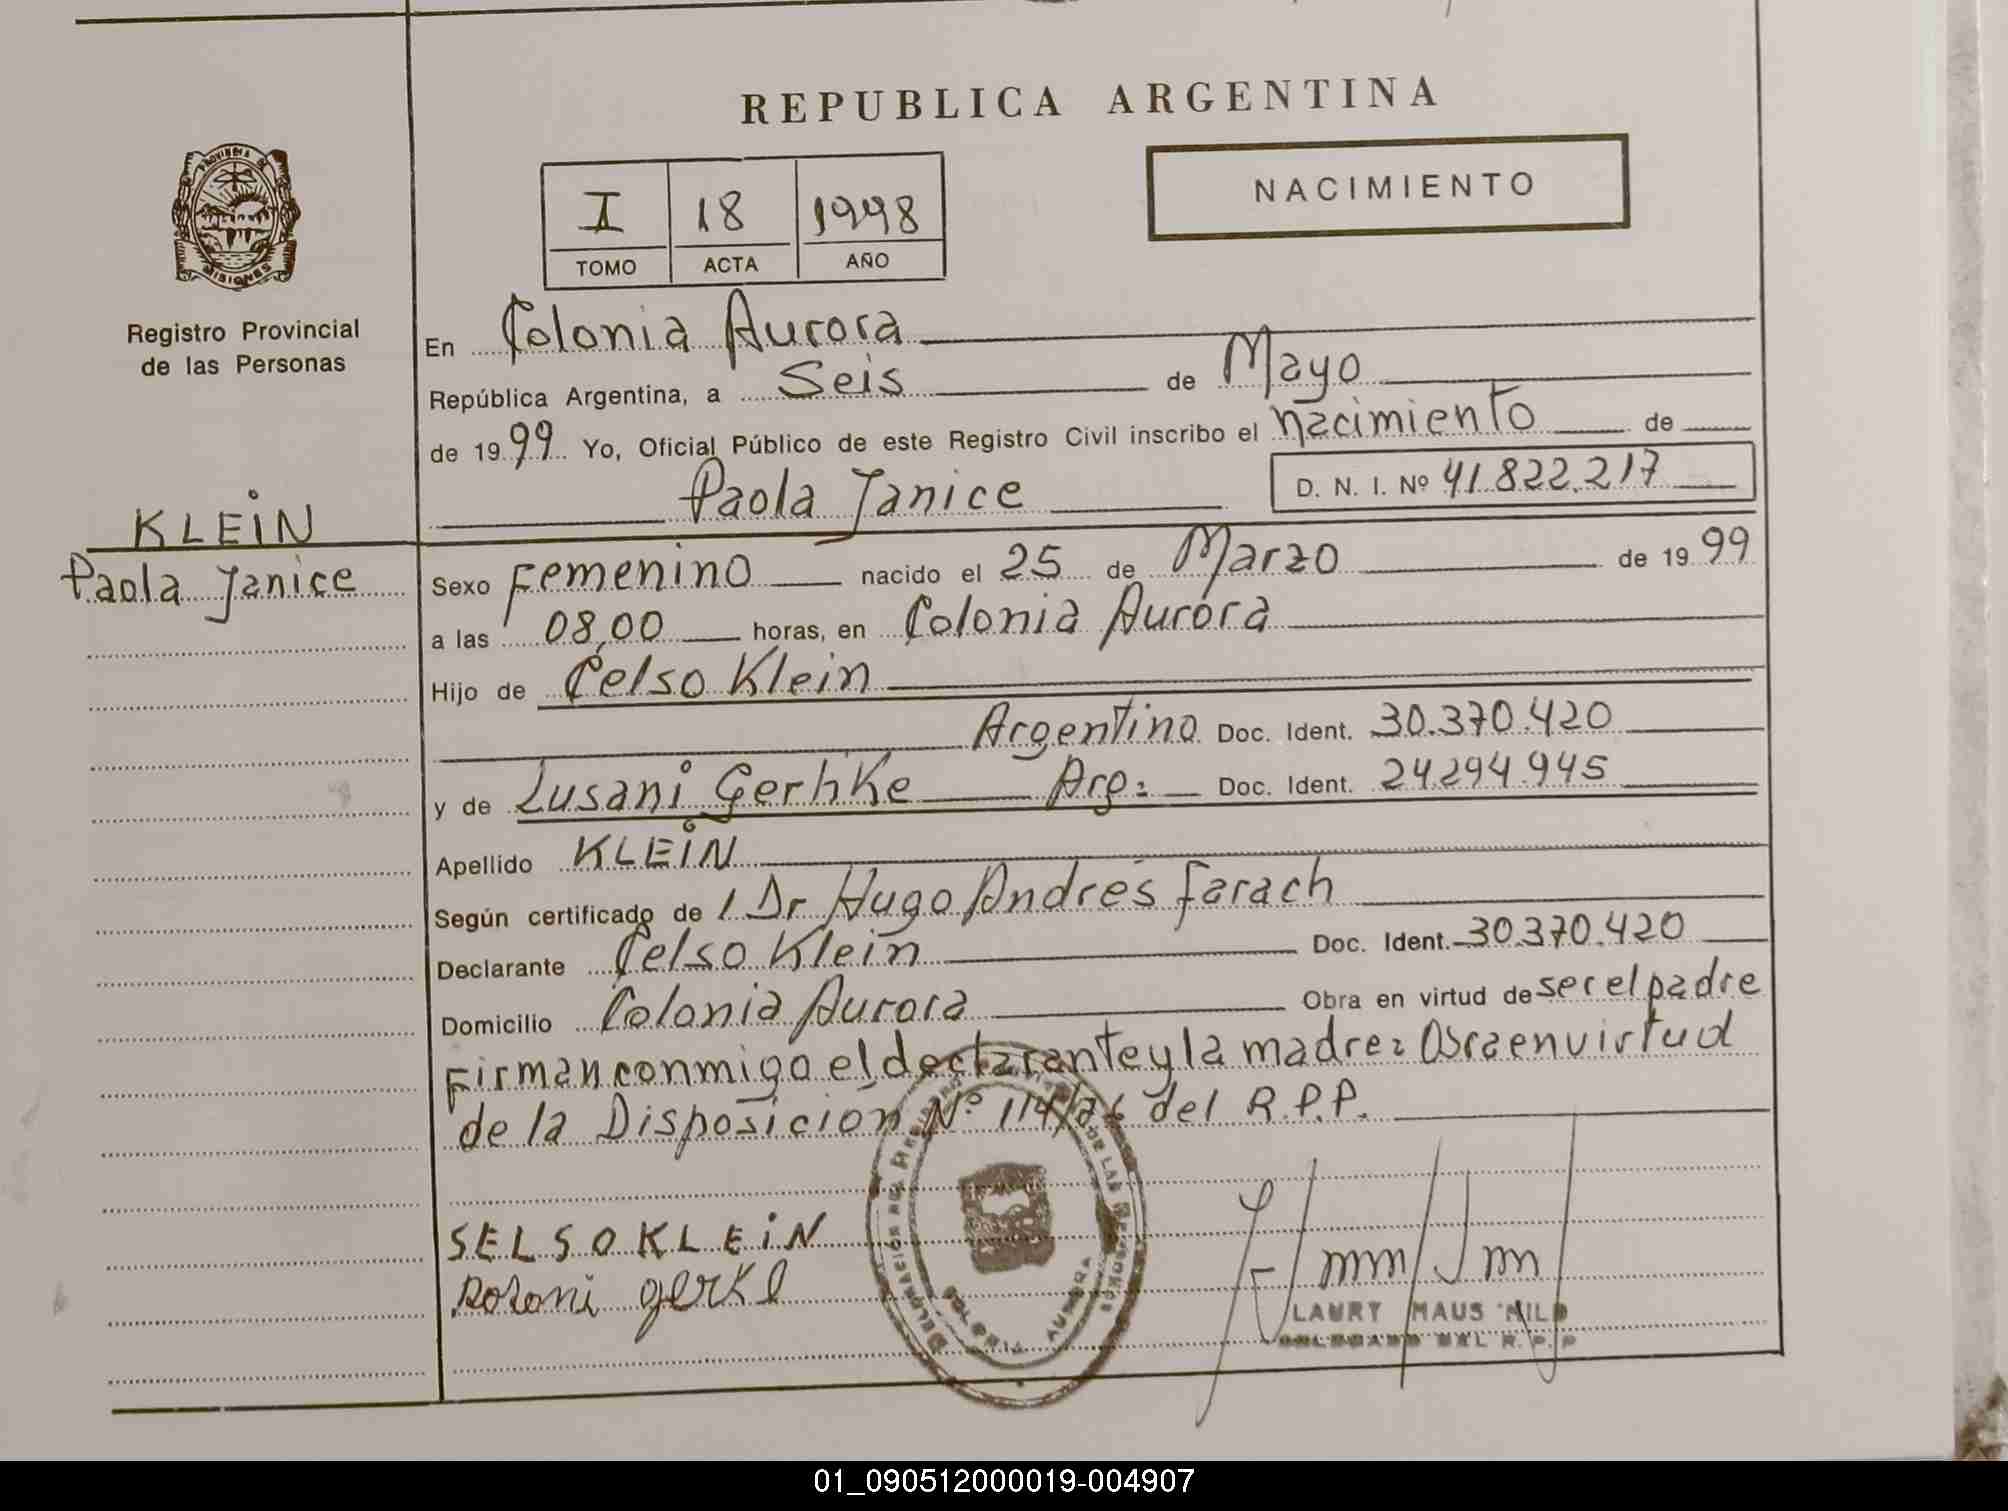 REPUBLICA ARGENTINA
NACIMIENTO
I 18 1998
TOMO ACTA AÑO
PROVINCIA DE
MISIONES
Registro Provincial
de las Personas
KLEIN
Paola Janice
En Colonia Aurora
República Argentina, a Seis de Mayo
de 1999 Yo, Oficial Público de este Registro Civil inscribo el nacimiento de
Paola Janice D. N. I. Nº 41.822.217
Sexo Femenino nacido el 25 de Marzo de 1999
a las 08,00 horas, en Colonia Aurora
Hijo de Celso Klein
Argentino Doc. Ident. 30.370.420
y de Lusani Gerhke Arg: Doc. Ident. 24.294.945
Apellido KLEIN
Según certificado de / Dr Hugo Andres Farach
Declarante Celso Klein Doc. Ident. 30.370.420
Domicilio Colonia Aurora Obra en virtud de ser el padre
Firman conmigo el declarante y la madre: Obra en virtud
de la Disposición Nº 114/ del R.P.P.
SELSO KLEIN
gerke
DE LAS PERSONAS
COLONIA AURORA
LAURY MAUS
DELEGADO DEL R.P.P
01_090512000019-004907